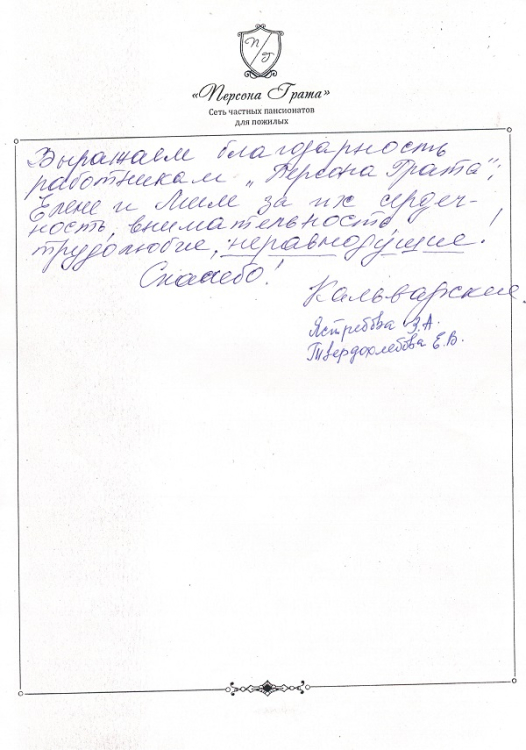 П/Г
«Персона Грата»
Сеть частных пансионатов
для пожилых
Выражаем благодарность
работникам „Персона Грата",
Елене и Лиле за их сердеч-
ность, внимательность
трудолюбие, неравнодушие!
Спасибо!
Кальварские.
Ястребова З.А.
Твердохлебова Е.В.